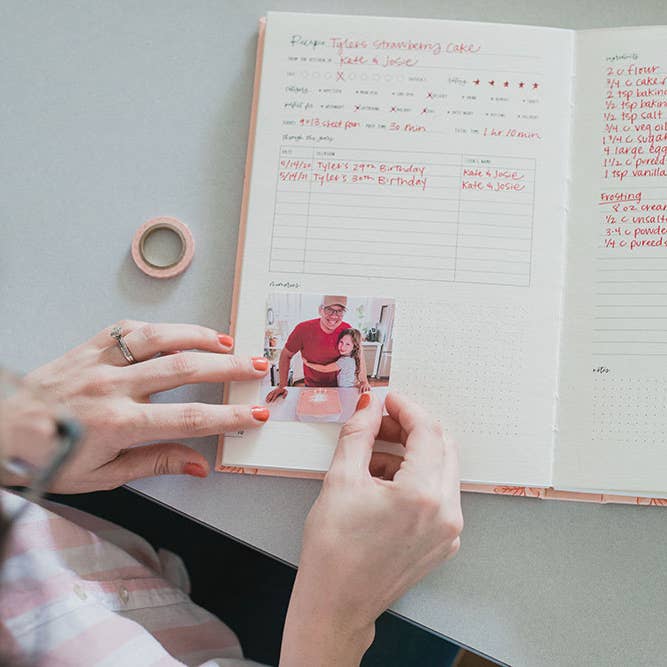 Recipe Tyler's Strawberry Cake
from the kitchen of Kate & Josie
rating
category
perfect for
serves 9x13 sheet pan prep time 30 min total time 1 hr 10 min
through the years
date occasion cook's name
5/14/20 Tyler's 29th Birthday Kate & Josie
5/14/21 Tyler's 30th Birthday Kate & Josie
memories
ingredients
2 c flour
3/4 c cake
2 tsp baking
1/2 tsp baking
1/2 tsp salt
3/4 c veg oil
1 3/4 c sugar
4 large eggs
1 1/2 c pureed
1 tsp vanilla
Frosting
8 oz cream
1/2 c unsalte
3-4 c powde
1/4 c pureeds
notes